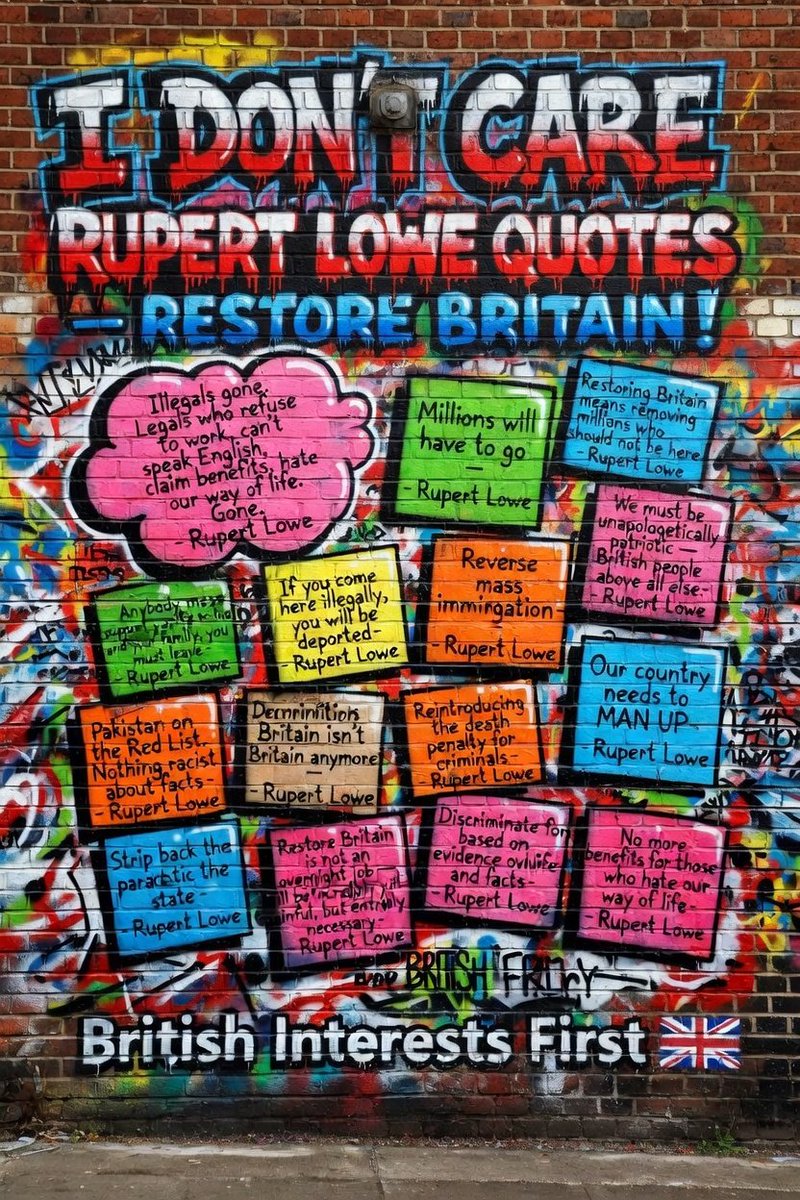 I DON'T CARE
RUPERT LOWE QUOTES
— RESTORE BRITAIN!
Illegals gone.
Legals who refuse
to work, can't
speak English,
claim benefits, hate
our way of life.
Gone.
- Rupert Lowe
Millions will
have to go
—
- Rupert Lowe
Restoring Britain
means removing
millions who
should not be here
- Rupert Lowe
We must be
unapologetically
patriotic —
British people
above all else-
- Rupert Lowe
Anybody
and family, you
must leave-
- Rupert Lowe
If you come
here illegally,
you will be
deported-
- Rupert Lowe
Reverse
mass
immirgation
- Rupert Lowe
Our country
needs to
MAN UP-
- Rupert Lowe
Pakistan on
the Red List.
Nothing racist
about facts-
- Rupert Lowe
Britain isn't
Britain anymore
—
- Rupert Lowe
Reintroducing
the death
penalty for
criminals-
- Rupert Lowe
Strip back the
the
state-
- Rupert Lowe
Restore Britain
is not an
overnight job
will be
but
necessary-
Rupert Lowe
Discriminate
based on
evidence
and facts-
- Rupert Lowe
No more
benefits for those
who hate our
way of life-
- Rupert Lowe
BRITISH
British Interests First